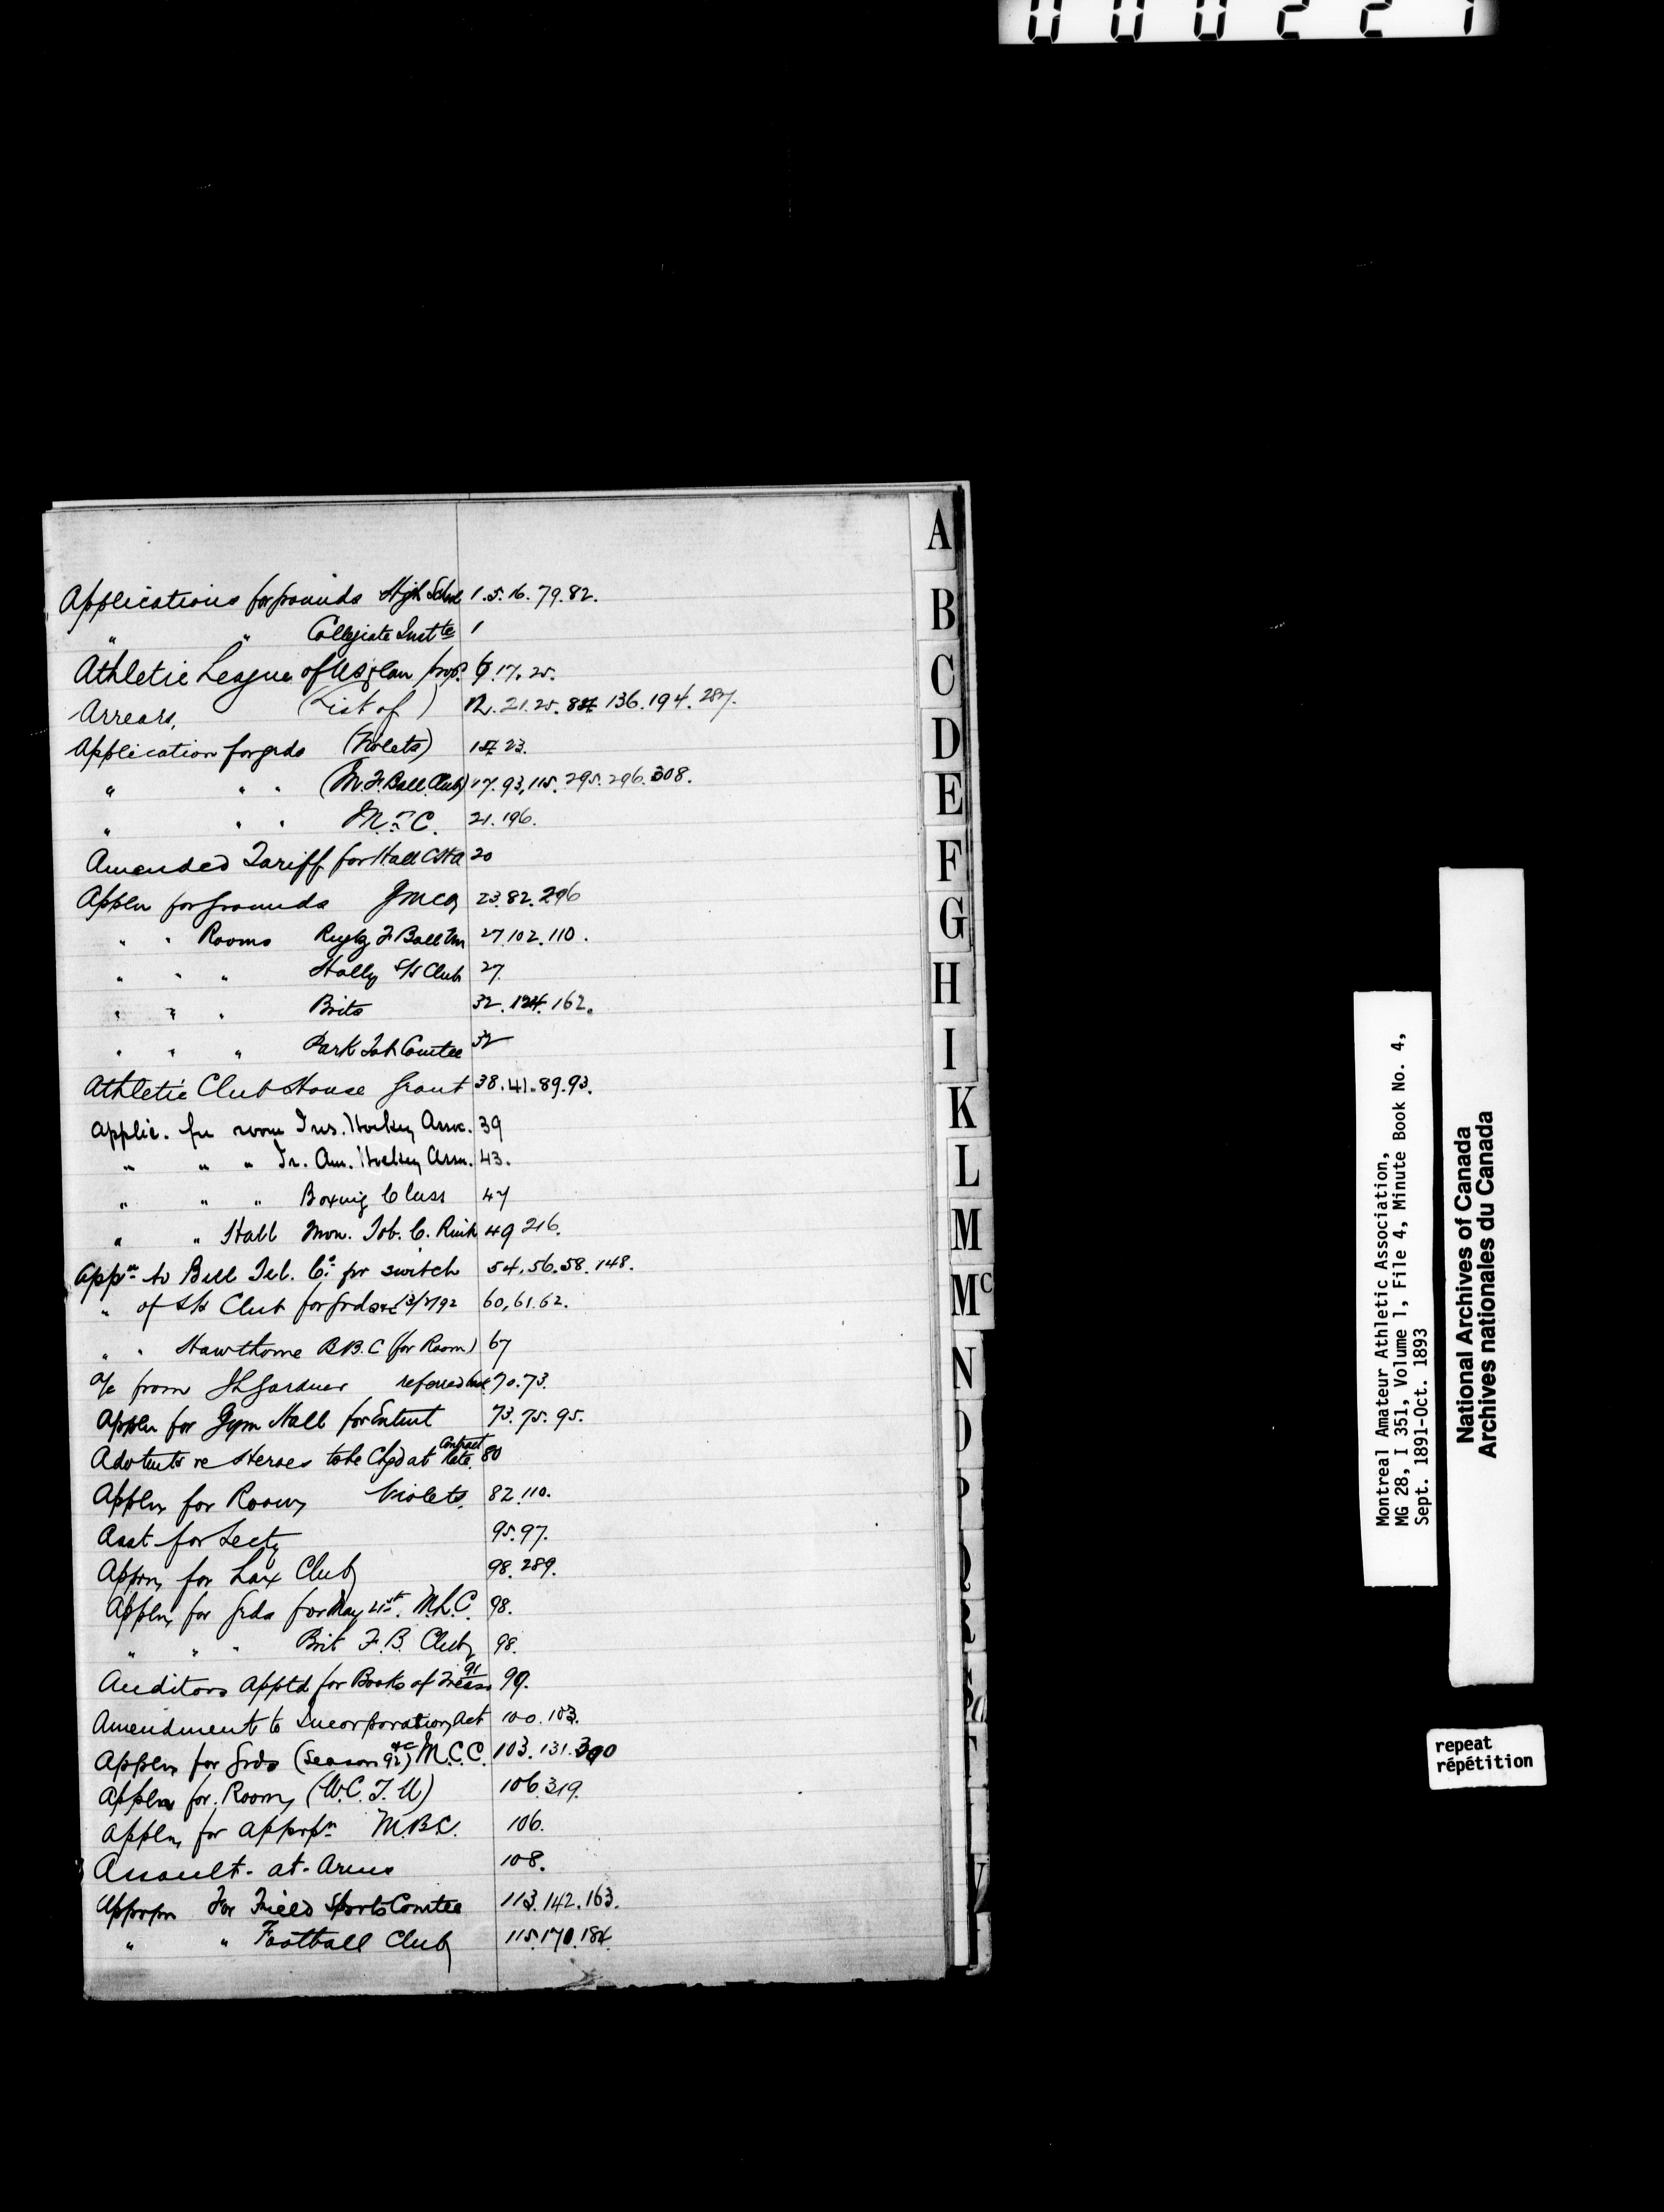 000221
A
B
C
D
E
F
G
H
I
K
L
M
Mc
N
O
P
Applications for grounds High School 1. 5. 16. 79. 82.
" " Collegiate Instte 1
Athletic League of US & Can prop. 9. 17. 25.
Arrears, (List of) 12. 21. 25. 84 136. 194. 287.
Application for grds (Violets) 14 23.
" " " (M. F. Ball Club) 17. 93, 115. 295. 296. 308.
" " " 21. 196.
Amended Tariff for Hall &c 20
Appln for grounds YMCA 23. 82. 296
" " Rooms Rugby F Ball Un 27. 102. 110.
" " " Holly S/S Club 27.
" " " Brits 32. 124. 162.
" " " Park Tob Comtee 32
Athletic Club House Grant 38. 41. 89. 93.
Applic. for room Jus. Hockey Assoc. 39
" " " Jr. Am. Hockey Assn. 43.
" " " Boxing Class 47
" " Hall Mon. Tob. C. Rink 49 216.
Appn to Bell Tel. Co. for switch 54. 56. 58. 148.
" of S/S Club for Grds &c 13/2/92 60, 61. 62.
" " Hawthorne B.B.C (for Room) 67
a/c from referred back 70. 73.
Appln for Gym Hall for Entmt 73. 75. 95.
Advtmts re Heroes to be Chgd at Contract Rate. 80
Appln for Room, Violets. 82. 110.
Asst for Secty 95. 97.
Apprn for Lax Club 98. 289.
Appln for Grds for May 21st. M.L.C. 98.
" " " Brit F.B. Club 98.
Auditors Apptd for Books of Treas 91 99.
Amendment to Incorporation Act 100. 103.
Appln for Grds (Season 92) &c M.C.C. 103. 131. 300
Appln for Room, (W.C.T.U) 106. 319.
Appln for apprpn M.B.C. 106.
Assault-at-Arms 108.
Apprpn For Field Sports Comtee 113. 142. 163.
" " Football Club 115. 170. 184.
Montreal Amateur Athletic Association,
MG 28, I 351, Volume 1, File 4, Minute Book No. 4,
Sept. 1891-Oct. 1893
National Archives of Canada
Archives nationales du Canada
repeat
répétition